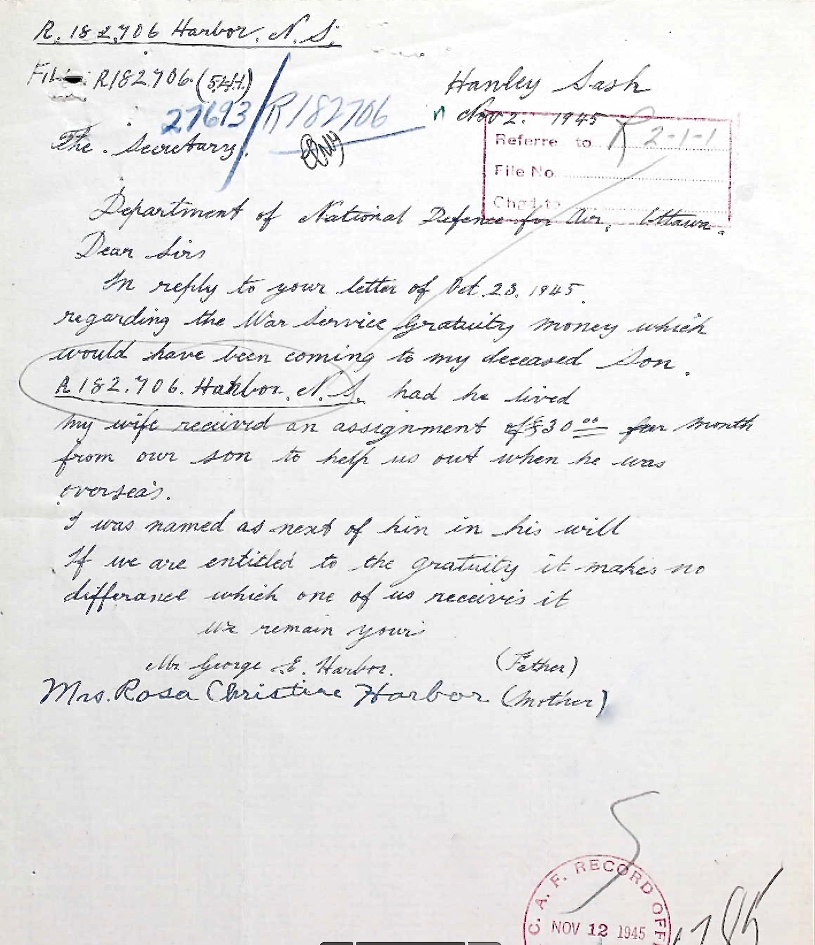 R. 182,706 Harbor. N. S.
FILE R182706 (544)
Hanley Sask
27693/R182706
Nov 2. 1945
The Secretary.
Referre to R 2-1-1
File No.
Chgd to
Department of National Defence for Air, Ottawa.
Dear Sirs
In reply to your letter of Oct. 23. 1945.
regarding the War Service Gratuity money which
would have been coming to my deceased Son.
R182.706. Harbor. N. S. had he lived
my wife received an assignment of $30.00 per month
from our son to help us out when he was
oversea's.
I was named as next of kin in his will
If we are entitled to the gratuity it makes no
differance which one of us receives it
We remain yours
Mr George E. Harbor. (Father)
Mrs. Rosa Christine Harbor (Mother)
C. A. F. RECORD OFF
NOV 12 1945